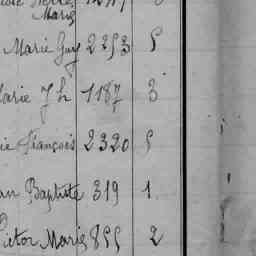 Marie
Marie Guy 2253 5
Marie Jh 1187 3
François 2320 5
Baptiste 319 1
Victor Marie 855 2